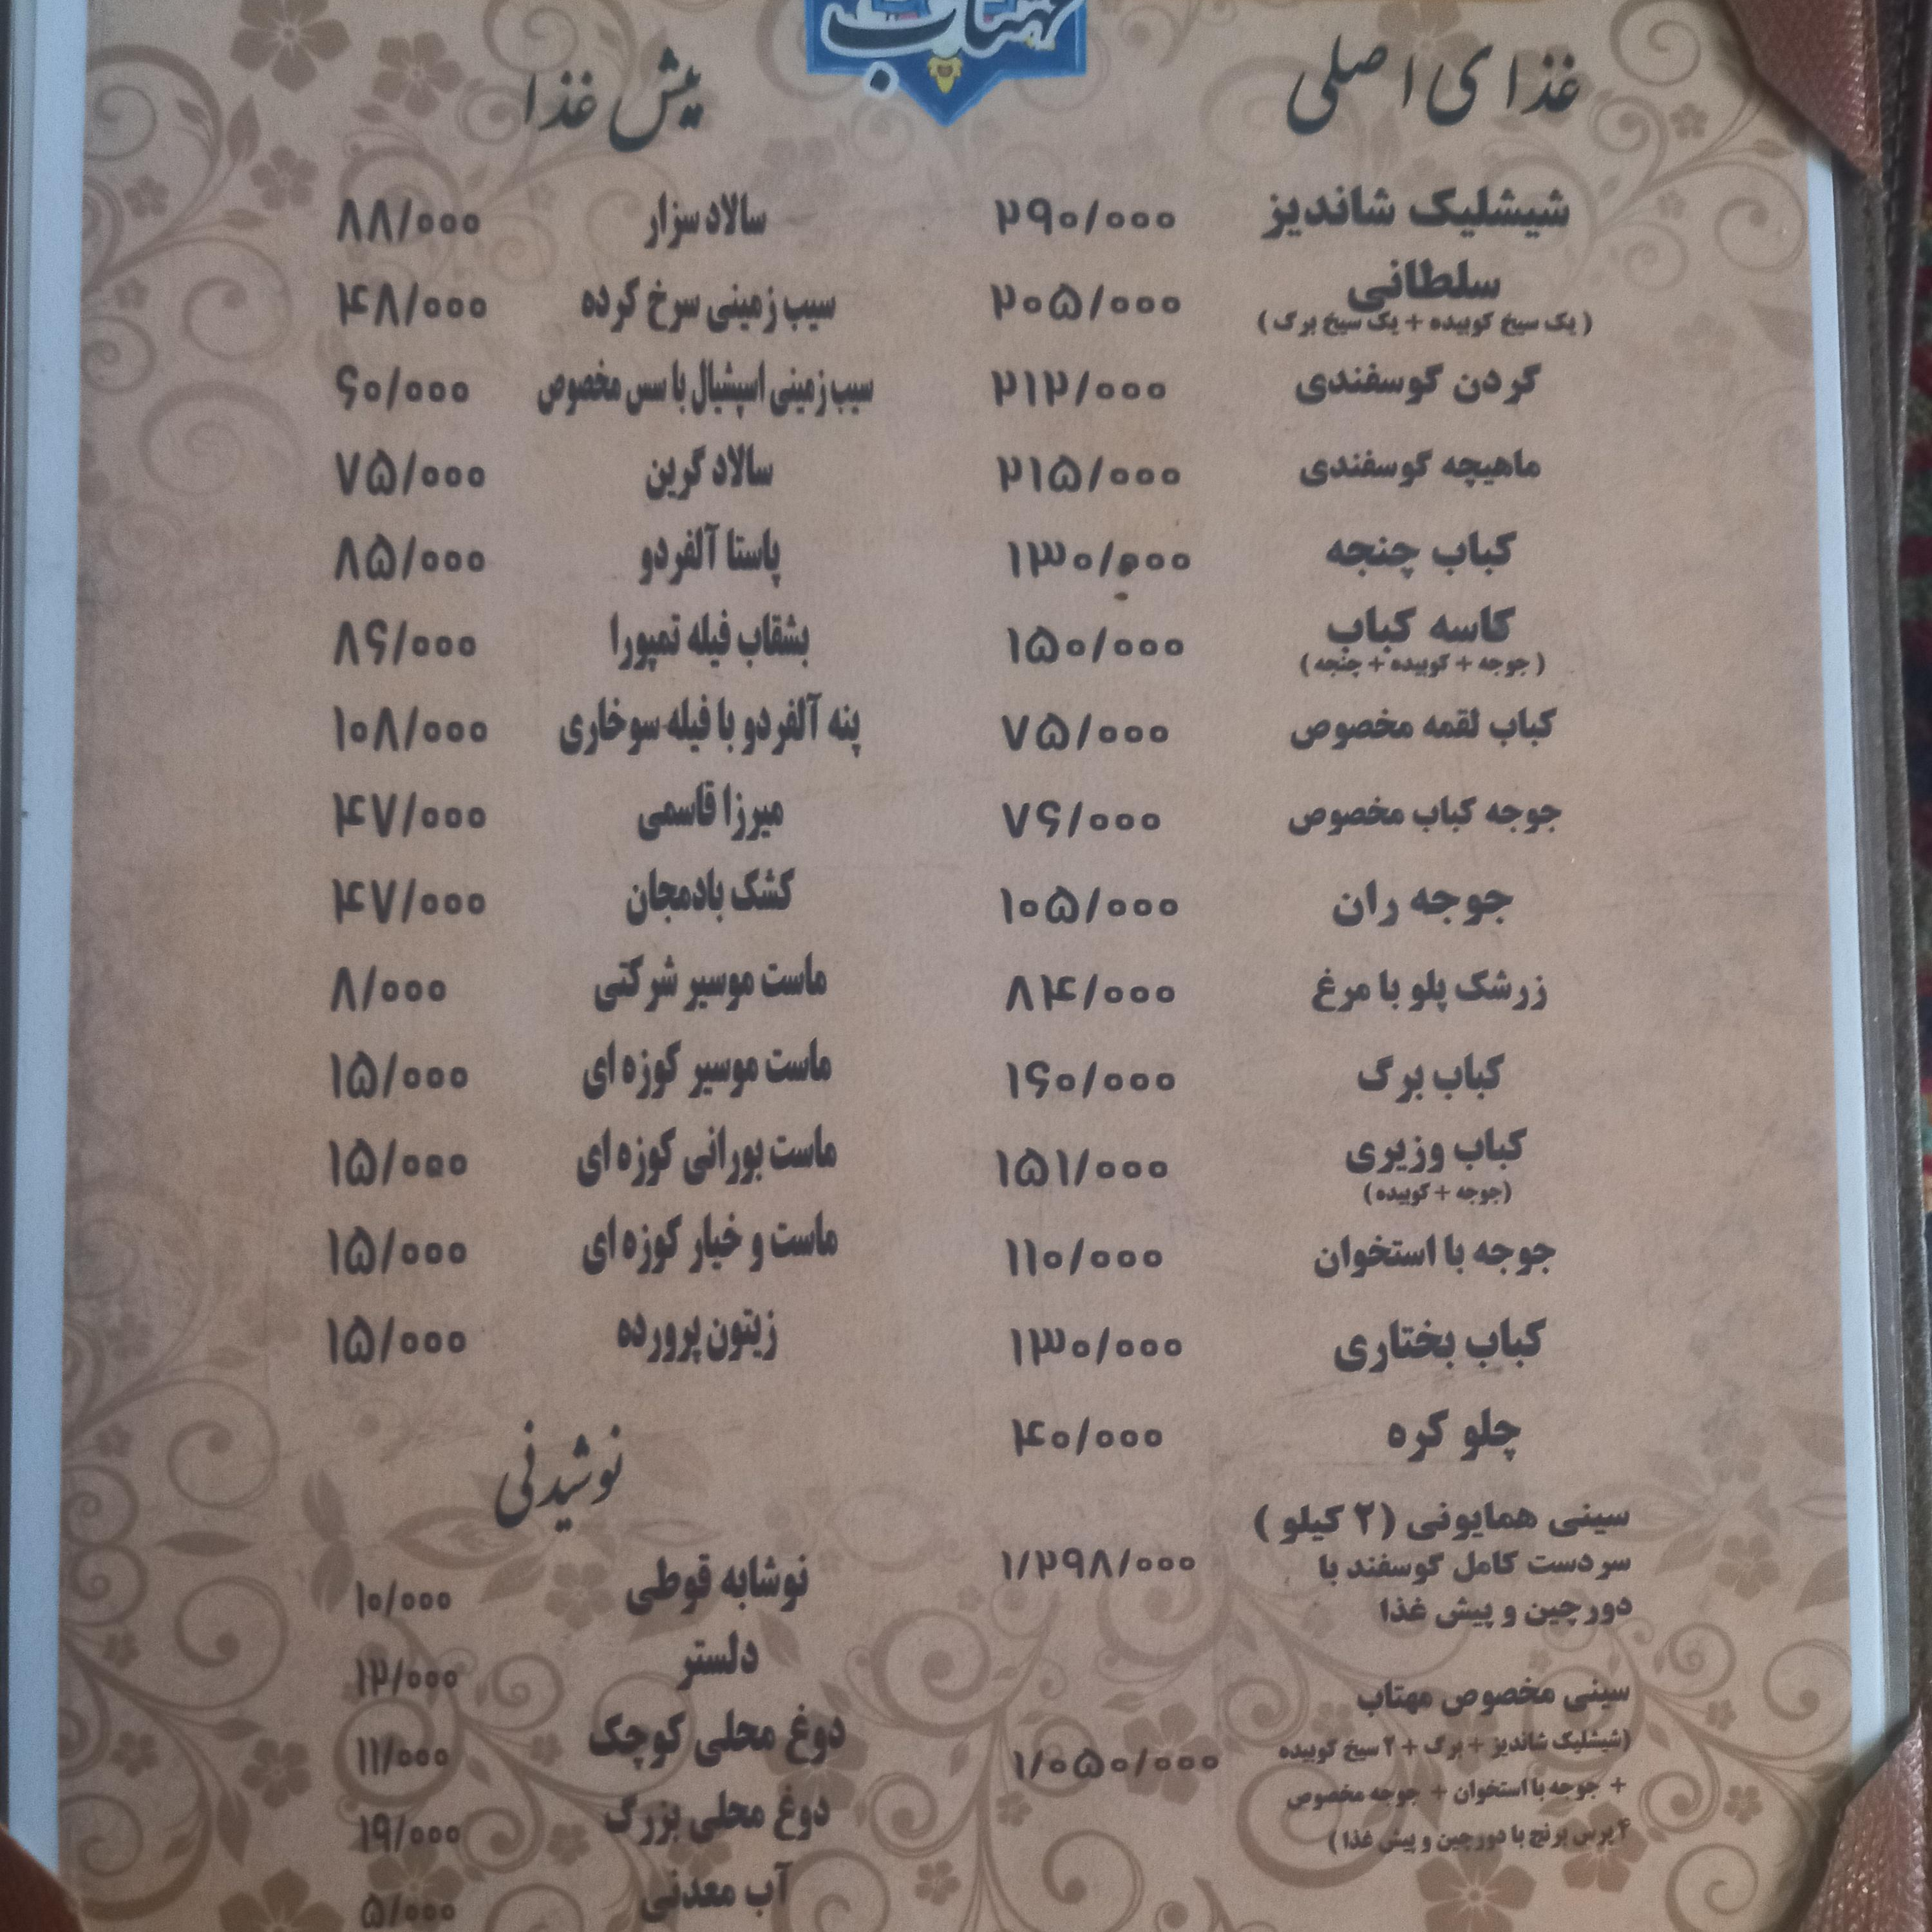 مهتاب
غذای اصلی
شیشلیک شاندیز ۲۹۰/۰۰۰
سلطانی ۲۰۵/۰۰۰
( یک سیخ کوبیده + یک سیخ برگ )
گردن گوسفندی ۲۱۲/۰۰۰
ماهیچه گوسفندی ۲۱۵/۰۰۰
کباب چنجه ۱۳۰/۰۰۰
کاسه کباب ۱۵۰/۰۰۰
( جوجه + کوبیده + چنجه )
کباب لقمه مخصوص ۷۵/۰۰۰
جوجه کباب مخصوص ۷۶/۰۰۰
جوجه ران ۱۰۵/۰۰۰
زرشک پلو با مرغ ۸۴/۰۰۰
کباب برگ ۱۶۰/۰۰۰
کباب وزیری ۱۵۱/۰۰۰
(جوجه + کوبیده )
جوجه با استخوان ۱۱۰/۰۰۰
کباب بختاری ۱۳۰/۰۰۰
چلو کره ۴۰/۰۰۰
سینی همایونی (۲ کیلو )
سردست کامل گوسفند با ۱/۲۹۸/۰۰۰
دورچین و پیش غذا
سینی مخصوص مهتاب
(شیشلیک شاندیز + برگ + ۲ سیخ کوبیده ۱/۰۵۰/۰۰۰
+ جوجه با استخوان + جوجه مخصوص
۴ پرس برنج با دورچین و پیش غذا )
پیش غذا
سالاد سزار ۸۸/۰۰۰
سیب زمینی سرخ کرده ۴۸/۰۰۰
سیب زمینی اسپشیال با سس مخصوص ۶۰/۰۰۰
سالاد گرین ۷۵/۰۰۰
پاستا آلفردو ۸۵/۰۰۰
بشقاب فیله تمپورا ۸۶/۰۰۰
پنه آلفردو با فیله سوخاری ۱۰۸/۰۰۰
میرزا قاسمی ۴۷/۰۰۰
کشک بادمجان ۴۷/۰۰۰
ماست موسیر شرکتی ۸/۰۰۰
ماست موسیر کوزه ای ۱۵/۰۰۰
ماست بورانی کوزه ای ۱۵/۰۰۰
ماست و خیار کوزه ای ۱۵/۰۰۰
زیتون پرورده ۱۵/۰۰۰
نوشیدنی
نوشابه قوطی ۱۰/۰۰۰
دلستر ۱۲/۰۰۰
دوغ محلی کوچک ۱۱/۰۰۰
دوغ محلی بزرگ ۱۹/۰۰۰
آب معدنی ۵/۰۰۰